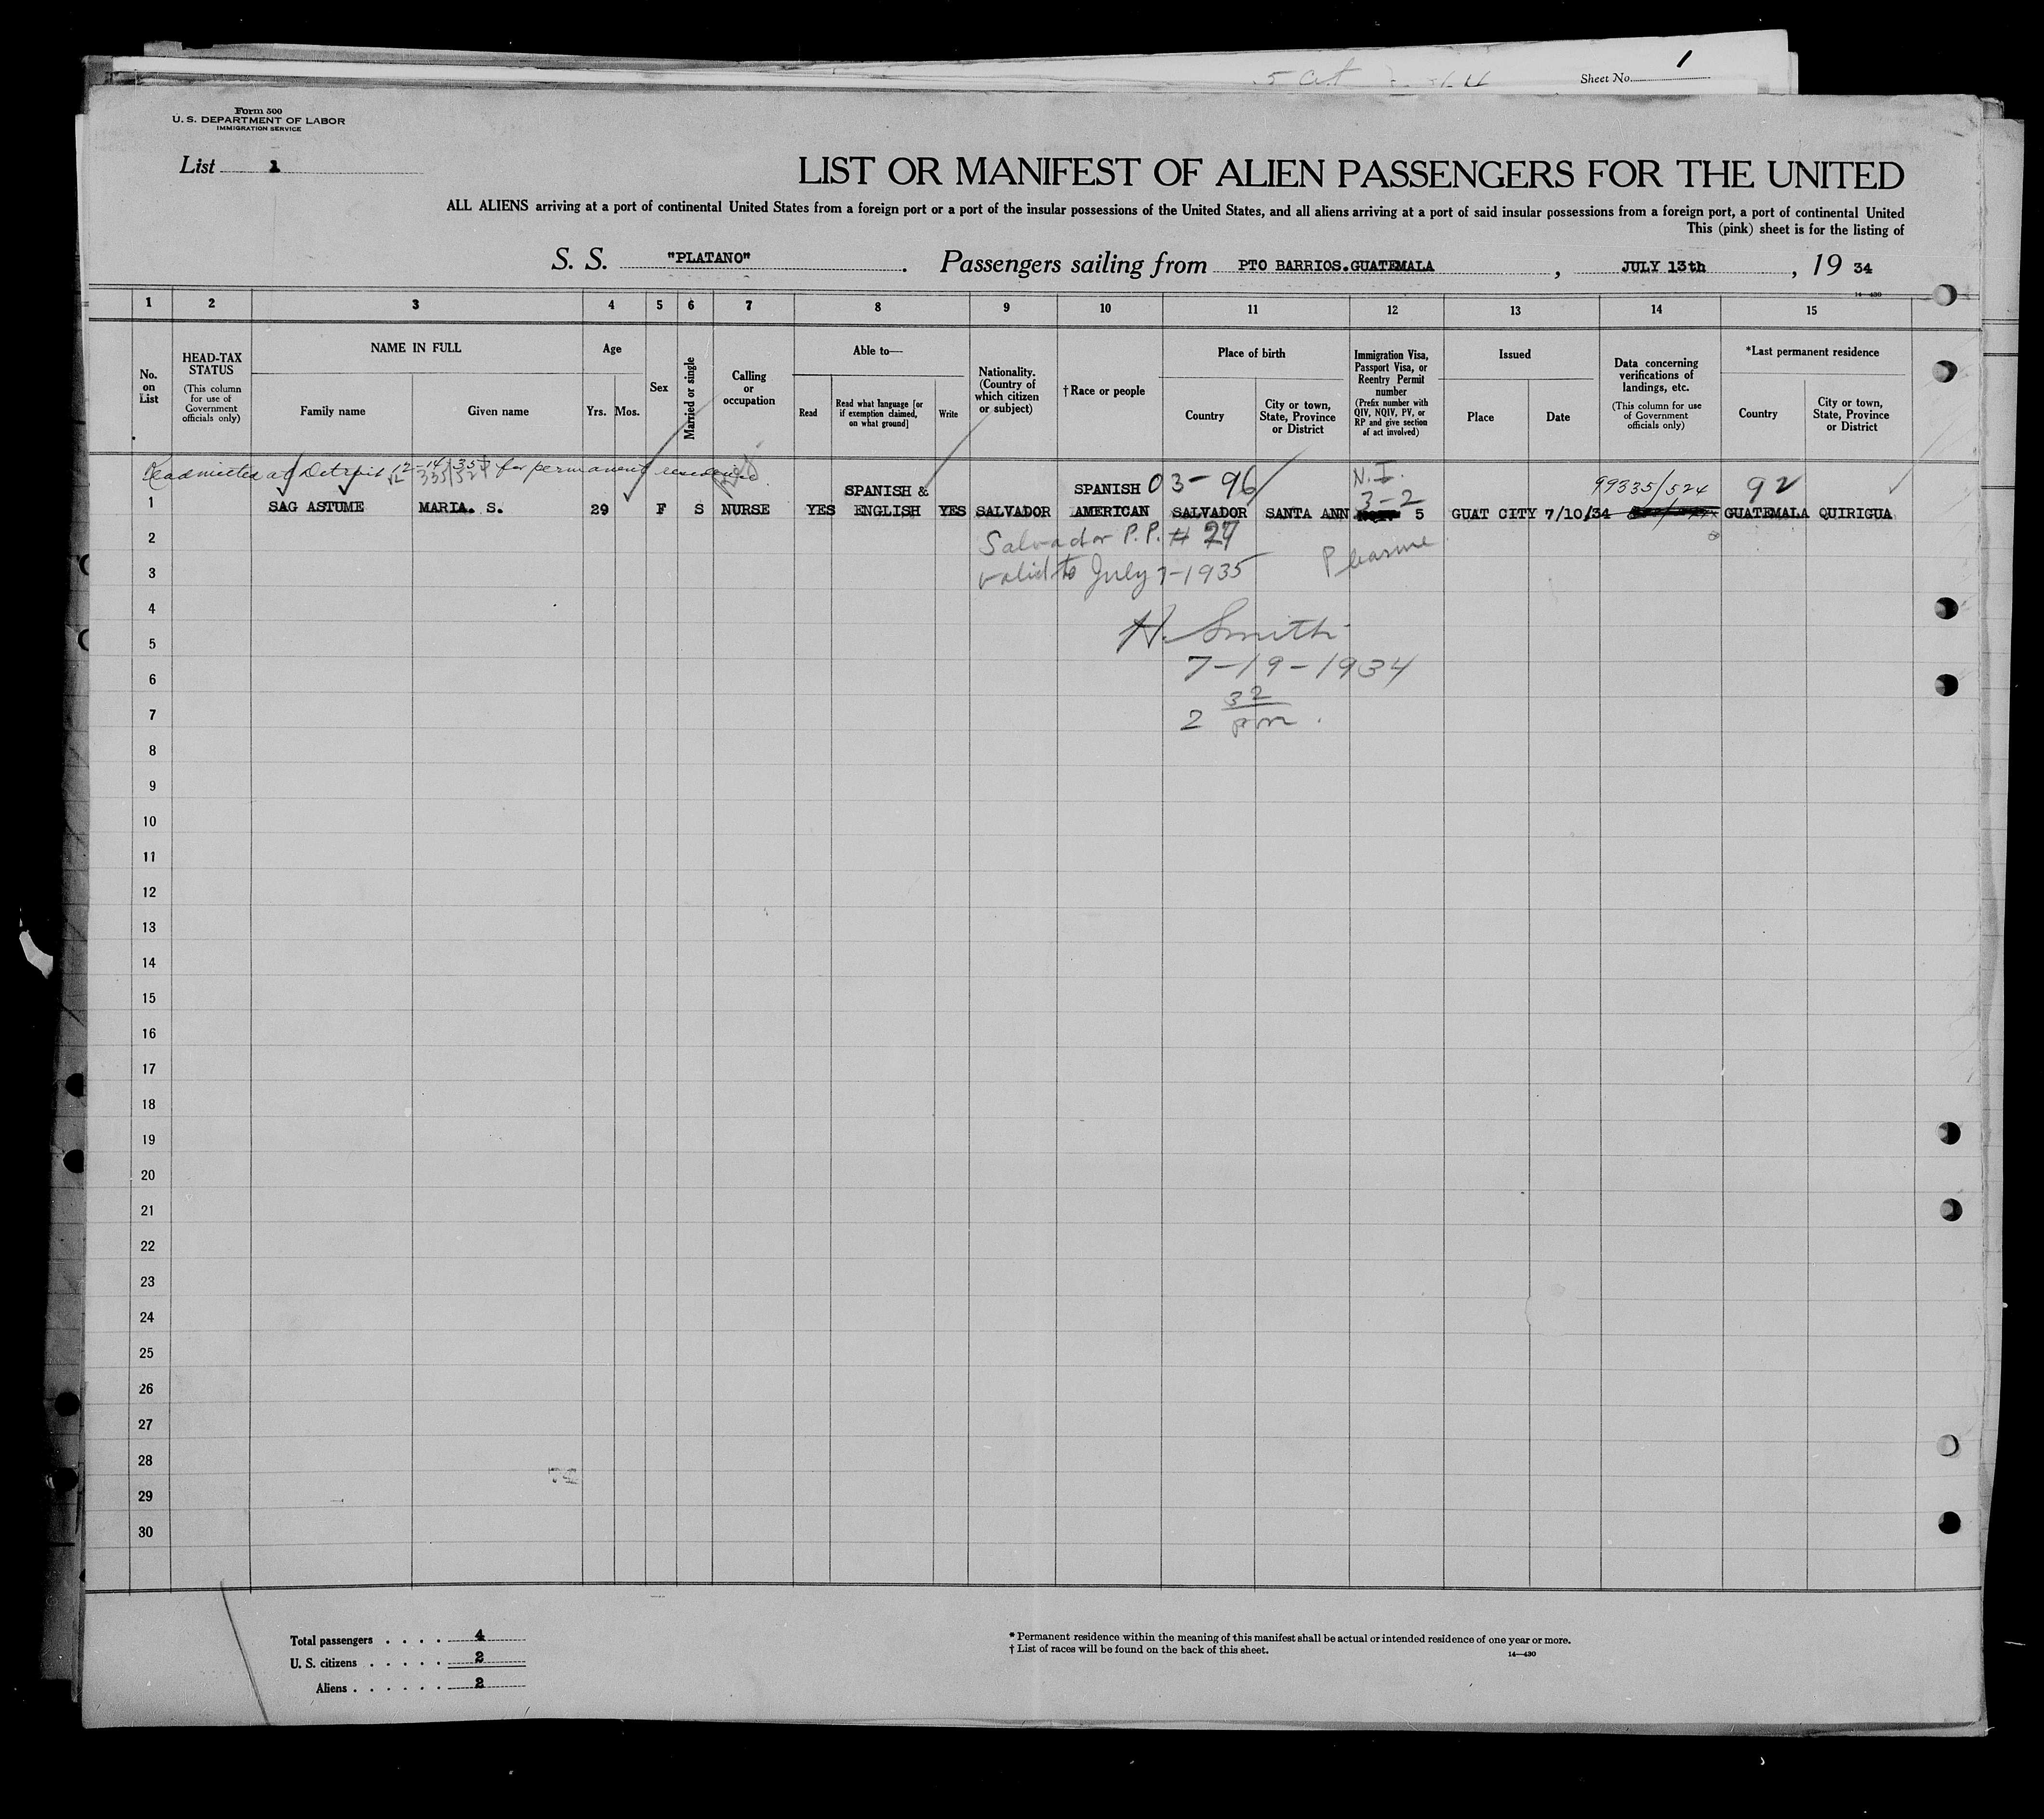 5 at
Sheet No. 1
Form 500
U. S. DEPARTMENT OF LABOR
IMMIGRATION SERVICE
List 1
LIST OR MANIFEST OF ALIEN PASSENGERS FOR THE UNITED
ALL ALIENS arriving at a port of continental United States from a foreign port or a port of the insular possessions of the United States, and all aliens arriving at a port of said insular possessions from a foreign port, a port of continental United
This (pink) sheet is for the listing of
S. S. "PLATANO". Passengers sailing from PTO BARRIOS.GUATEMALA, JULY 13th, 19 34
14—430
1 2 3 4 5 6 7 8 9 10 11 12 13 14 15
No. on List
HEAD-TAX STATUS (This column for use of Government officials only)
NAME IN FULL
Family name Given name
Age
Yrs. Mos.
Sex
Married or single
Calling or occupation
Able to—
Read Read what language [or if exemption claimed, on what ground] Write
Nationality. (Country of which citizen or subject)
†Race or people
Place of birth
Country City or town, State, Province or District
Immigration Visa, Passport Visa, or Reentry Permit number (Prefix number with QIV, NQIV, PV, or RP and give section of act involved)
Issued
Place Date
Data concerning verifications of landings, etc. (This column for use of Government officials only)
*Last permanent residence
Country City or town, State, Province or District
Readmitted at Detroit 12-14-35 for permanent residence.
335/524
SPANISH & SPANISH 03-96 N.I. 99335/524 92
3-2
1 SAG ASTUME MARIA. S. 29 F S NURSE YES ENGLISH YES SALVADOR AMERICAN SALVADOR SANTA ANN 5 GUAT CITY 7/10/34 GUATEMALA QUIRIGUA
2 Salvador P.P. # 27 Pleasure
3 valid to July 7-1935
4
5 H. Smith
6 7-19-1934
7 2 32 pm.
8
9
10
11
12
13
14
15
16
17
18
19
20
21
22
23
24
25
26
27
28
29
30
Total passengers . . . . 4
U. S. citizens . . . . . 2
Aliens . . . . . . 2
* Permanent residence within the meaning of this manifest shall be actual or intended residence of one year or more.
† List of races will be found on the back of this sheet.
14—430